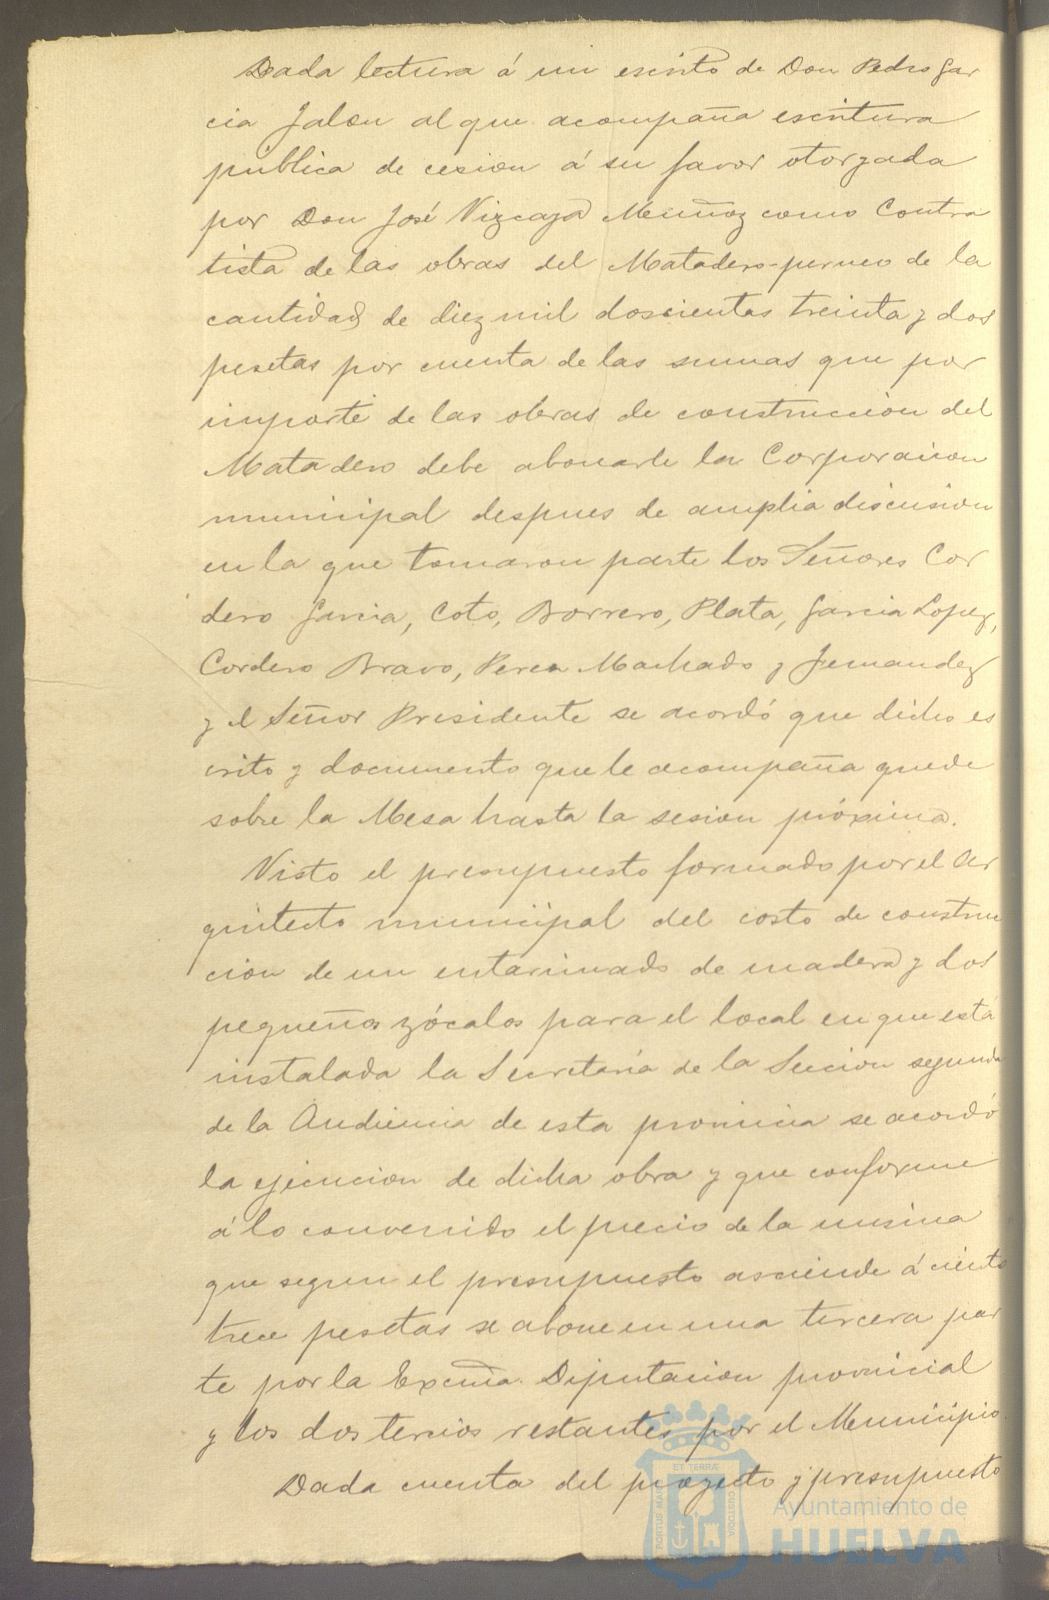 Dada lectura á un escrito de Don Pedro Gar
cia Jalon al que acompaña escritura
pública de cesion á su favor otorgada
por Don José Vizcaya Muñoz como Contra
tista de las obras del Matadero-perneo de la
cantidad de diez mil doscientas treinta y dos
pesetas por cuenta de las sumas que por
importe de las obras de construccion del
Matadero debe abonarle la Corporacion
municipal despues de amplia discusion
en la que tomaron parte los Señores Cor
dero Garcia, Coto, Borrero, Plata, Garcia Lopez,
Cordero Bravo, Perea Machado y Fernandez
y el Señor Presidente se acordó que dicho es
crito y documento que le acompaña quede
sobre la Mesa hasta la sesion próxima.
Visto el presupuesto formado por el Ar
quitecto municipal del costo de construc
cion de un entarimado de madera y dos
pequeños zócalos para el local en que está
instalada la Secretaría de la Seccion segunda
de la Audiencia de esta provincia se acordó
la ejecucion de dicha obra y que conforme
á lo convenido el precio de la misma
que segun el presupuesto asciende á ciento
trece pesetas se abone en una tercera par
te por la Excma. Diputacion provincial
y los dos tercios restantes por el Municipio.
Dada cuenta del proyecto y presupuesto
ET TERRÆ
PORTUS MARIS
CUSTODIA
Ayuntamiento de
HUELVA